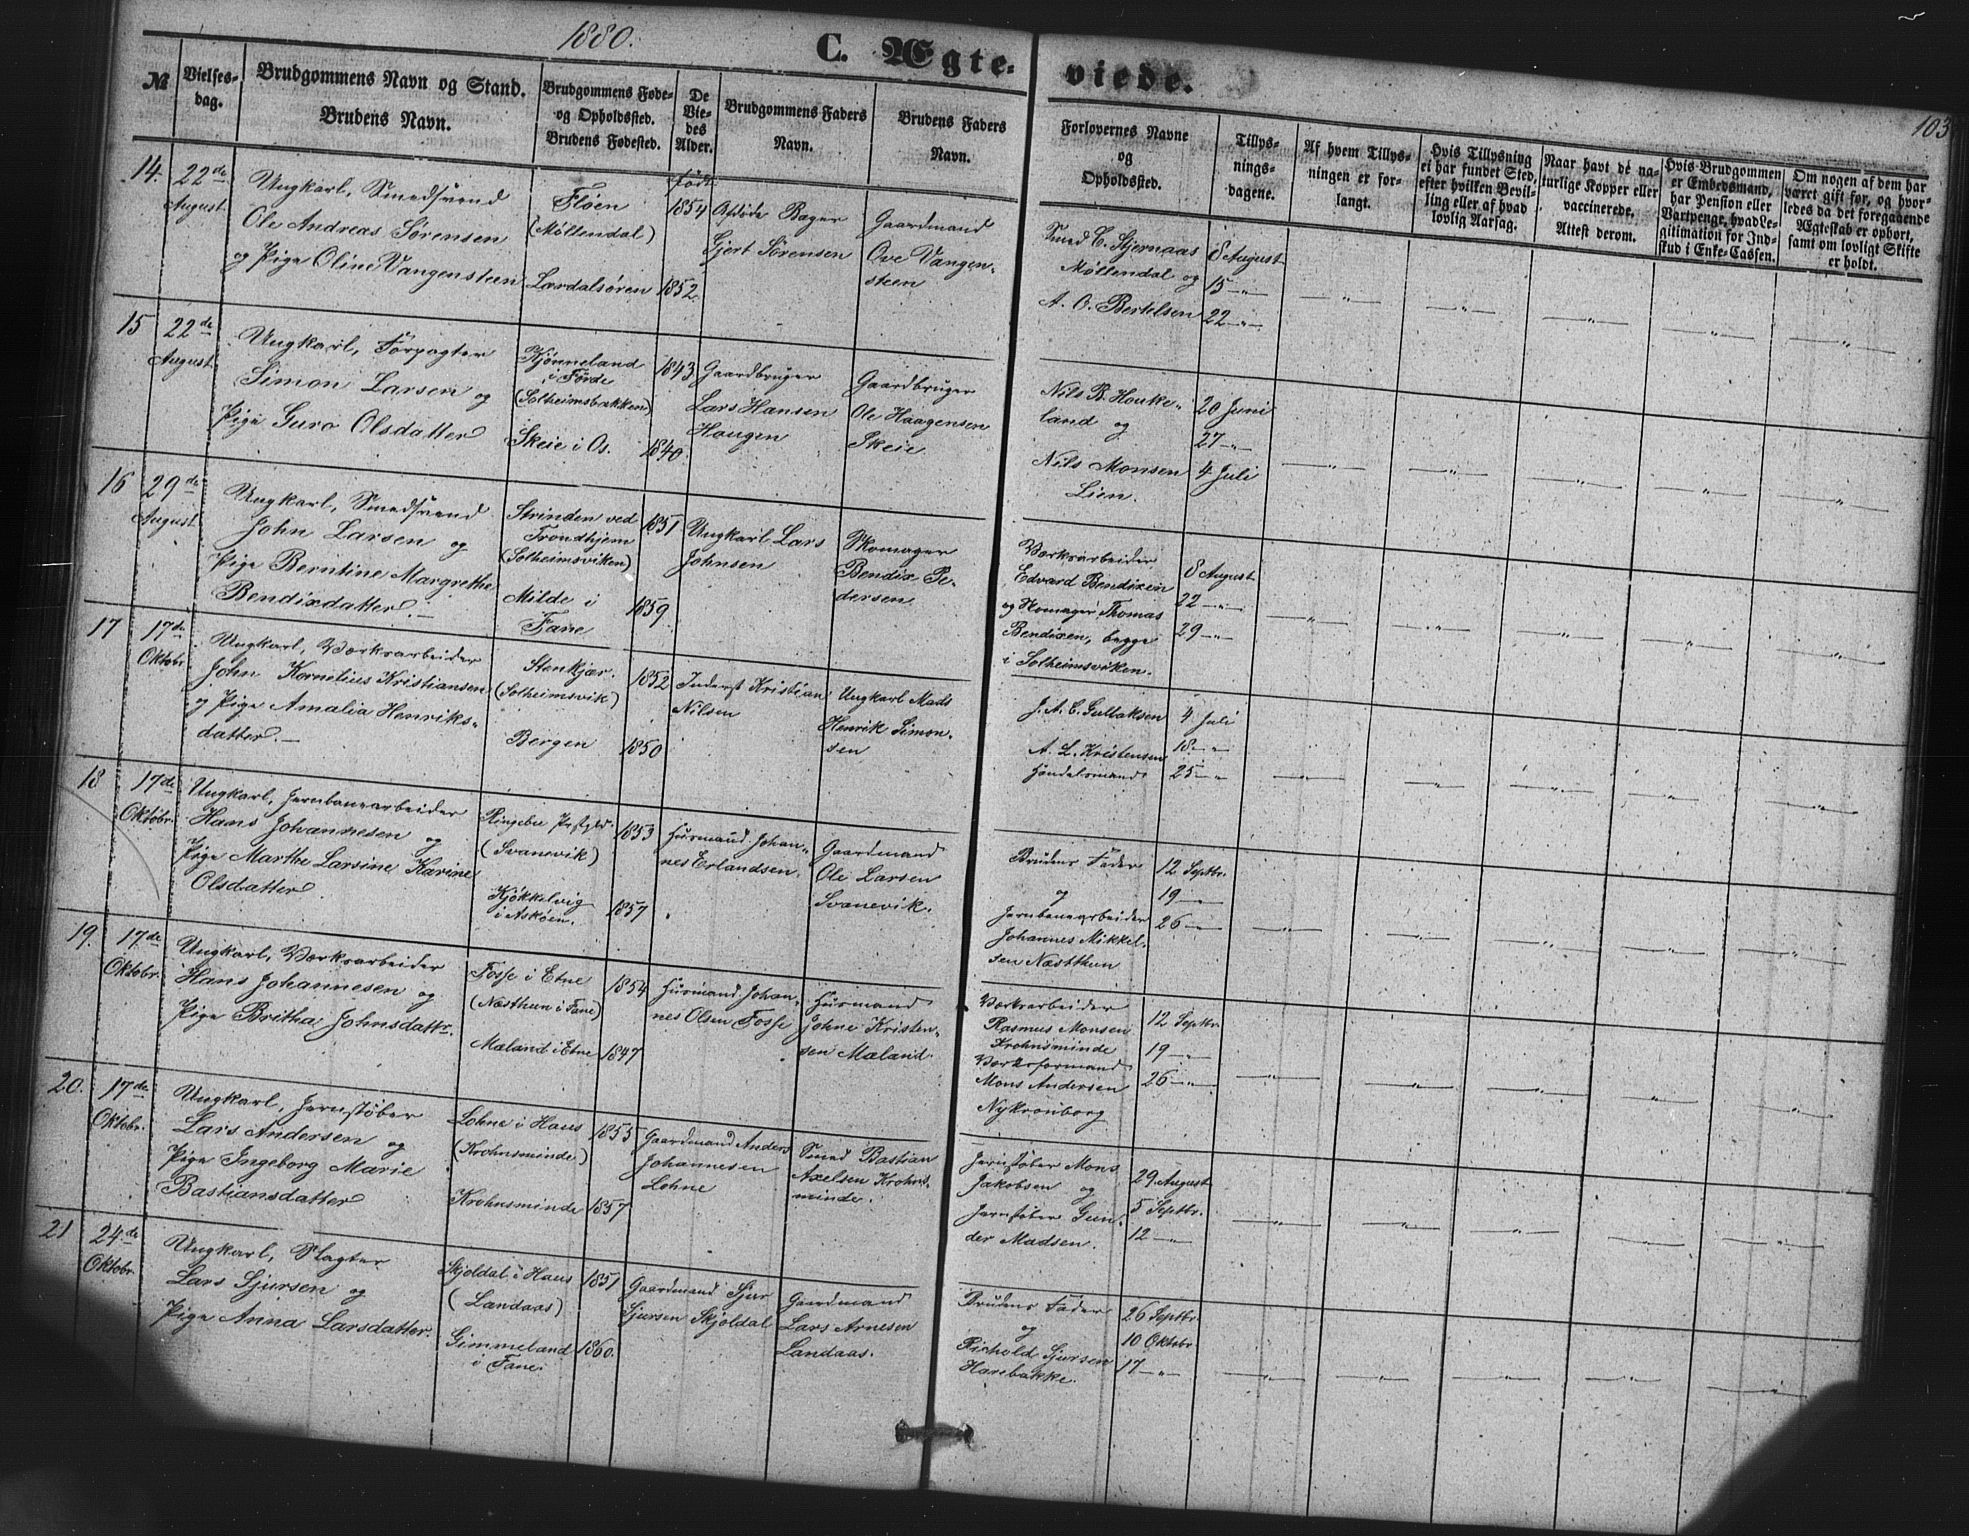 1880.
C. Ægte-
viede.
103
№
Vielses-
dag.
Brudgommens Navn og Stand.
Brudens Navn.
Brudgommens Føde-
og Opholdssted.
Brudens Fødested.
De
Vie-
des
Alder.
Brudgommens Faders
Navn.
Brudens Faders
Navn.
Forlovernes Navne
og
Opholdssted.
Tillys-
nings-
dagene.
Af hvem Tillys-
ningen er for-
langt.
Hvis Tillysning
ei har fundet Sted,
efter hvilken Bevil-
ling eller af hvad
lovlig Aarsag.
Naar havt de na-
turlige Kopper eller
vaccinerede.
Attest derom.
Hvis Brudgommen
er Embedsmand,
har Pension eller
Vartpenge, hvad Le-
gitimation for Ind-
skud i Enke-Cassen.
Om nogen af dem har
været gift før, og hvor-
ledes da det foregaaende
Ægteskab er ophørt,
samt om lovligt Skifte
er holdt.
14.
22de
August
Ungkarl, Smedsvend
Ole Andreas Sørensen
og Pige Oline Vangensteen
Fløen
(Møllendal)
Lærdalsøren
født
1854
1852.
Afdøde Bager
Gjert Sørensen
Gaardmand
Ove Vangen-
steen
Smed C. Stjernaas
Møllendal og
A. O. Bertelsen
8 August
15 —„—
22 —„—
15
22de
August
Ungkarl, Forpagter
Simon Larsen og
Pige Guro Olsdatter
Kjønneland
i Førde
(Solheimsbakken)
Skeie i Os.
1843
1840.
Gaardbruger
Lars Hansen
Haugen
Gaardbruger
Ole Haagensen
Skeie
Nils B. Houke-
land og
Nils Monsen
Lien.
20 Juni
27 —„
4 Juli
16
29de
August
Ungkarl, Smedsvend
John Larsen og
Pige Berntine Margrethe
Bendixdatter. —
Strinden ved
Trondhjem
(Solheimsviken)
Milde i
Fane
1851
1859.
Ungkarl Lars
Johnsen
Skomager
Bendix Pe-
dersen
Værksarbeider
Edvard Bendixen
og Skomager Thomas
Bendixen, begge
i Solheimsviken.
8 August
22 —„—
29 —„
17
17de
Oktobr.
Ungkarl, Værksarbeider
John Kornelius Kristiansen
og Pige Amalia Henriks-
datter. —
Stenkjær.
(Solheimsvik)
Bergen
1852
1850
Inderst Kristian
Nilsen
Ungkarl Mads
Henrik Simon-
sen
J. A. C. Gullaksen
A. L. Kristensen
Handelsmand
4 Juli
18 —„
25 —„
18
17de
Oktobr.
Ungkarl, Jernbanearbeider
Hans Johannesen og
Pige Marthe Larsine Karine
Olsdatter
Ringebu Præstgjld.
(Svanevik)
Kjøkkelvig
i Askøen.
1853
1857
Husmand Johan-
nes Erlandsen.
Gaardmand
Ole Larsen
Svanevik.
Brudens Fader
og
Jernbanearbeider
Johannes Mikkel-
sen Næstthun
12 Septbr.
19 —„
26 —„
19.
17de
Oktobr.
Ungkarl, Værksarbeider
Hans Johannesen og
Pige Britha Johnsdattr.
Fosse i Etne
(Næsthun i Fane)
Mæland i Etne
1854
1847
Husmand Johan-
nes Olsen Fosse
Husmand
Johne Kristen-
sen Mæland.
Værksarbeider
Rasmus Monsen
Krohnsminde
Værksformand
Mons Andersen
Nykronborg
12 Septbr.
19 —„
26 —„
20.
17de
Oktobr.
Ungkarl, Jernstøber
Lars Andersen og
Pige Ingeborg Marie
Bastiansdatter
Lohne i Haus
(Krohnsminde)
Krohnsminde
1855
1857
Gaardmand Anders
Johannesen
Lohne
Smed Bastian
Axelsen Krohns-
minde.
Jernstøber Mons
Jakobsen og
Jernstøber Gun-
der Madsen.
29. August
5 Septbr.
12 —„
21
24de
Oktobr.
Ungkarl, Slagter
Lars Sjursen og
Pige Anna Larsdatter.
Skjoldal i Haus
(Landaas)
Gimmeland
i Fane.
1851
1860.
Gaardmand Sjur
Sjursen Skjoldal
Gaardmand
Lars Arnesen
Landaas.
Brudens Fader
og
Richold Sjursen
Harebakke.
26 Septbr.
10 Oktobr
17 —„